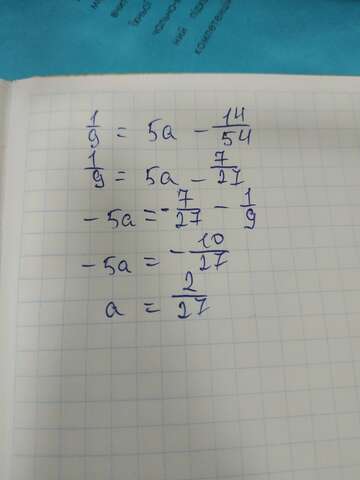 1/9 = 5a - 14/54
1/9 = 5a - 7/27
-5a = -7/27 - 1/9
-5a = -10/27
a = 2/27